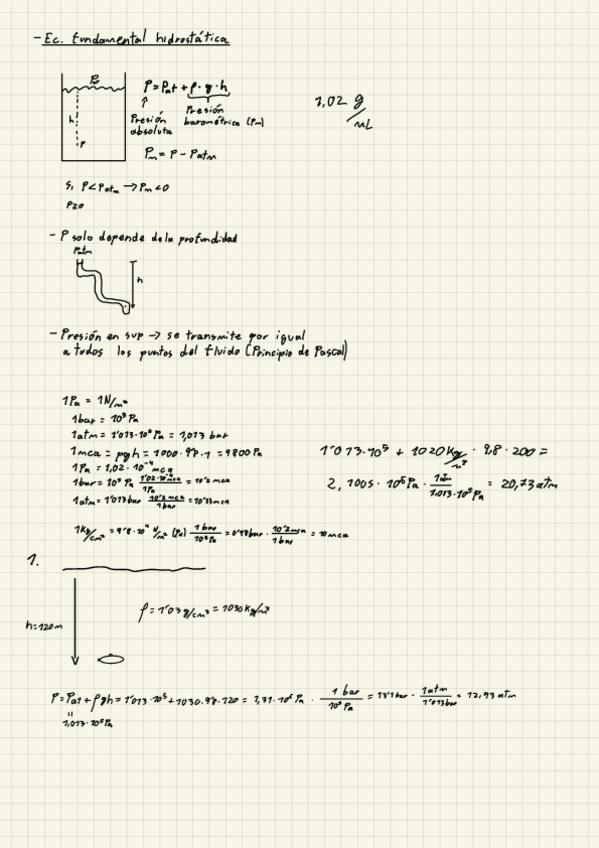 - Ec. fundamental hidrostática
Pat
P = Pat + ρ·g·h
1,02 g/mL
h
P
Presión absoluta
Presión barométrica (Pm)
Pm = P - Patm
Si P < Patm → Pm < 0
P≥0
- P solo depende de la profundidad
Patm
h
- Presión en sup → se transmite por igual
a todos los puntos del fluido (Principio de Pascal)
1Pa = 1N/m²
1bar = 10⁵ Pa
1atm = 1'013·10⁵ Pa = 1,013 bar
1mca = ρgh = 1000·9'8·1 = 9800 Pa
1Pa = 1,02·10⁻⁴ mca
1bar = 10⁵ Pa 1'02·10⁻⁴mca/1Pa = 10'2 mca
1atm = 1'013 bar 10'2 mca/1 bar = 10'33 mca
1'013·10⁵ + 1020 kg/m³ · 9,8 · 200 =
2,1005·10⁶ Pa · 1atm/1,013·10⁵ Pa = 20,73 atm
1kg/cm² = 9'8·10⁴ N/m² (Pa) 1 bar/10⁵ Pa = 0'98 bar · 10'2 mca/1 bar = 10 mca
1.
h = 120m
ρ = 1'03 g/cm³ = 1030 kg/m³
P = Pat + ρgh = 1'013·10⁵ + 1030·9'8·120 = 1,31·10⁶ Pa · 1 bar/10⁵ Pa = 13'1 bar · 1atm/1'013 bar = 12,93 atm
"
1,013·10⁵ Pa